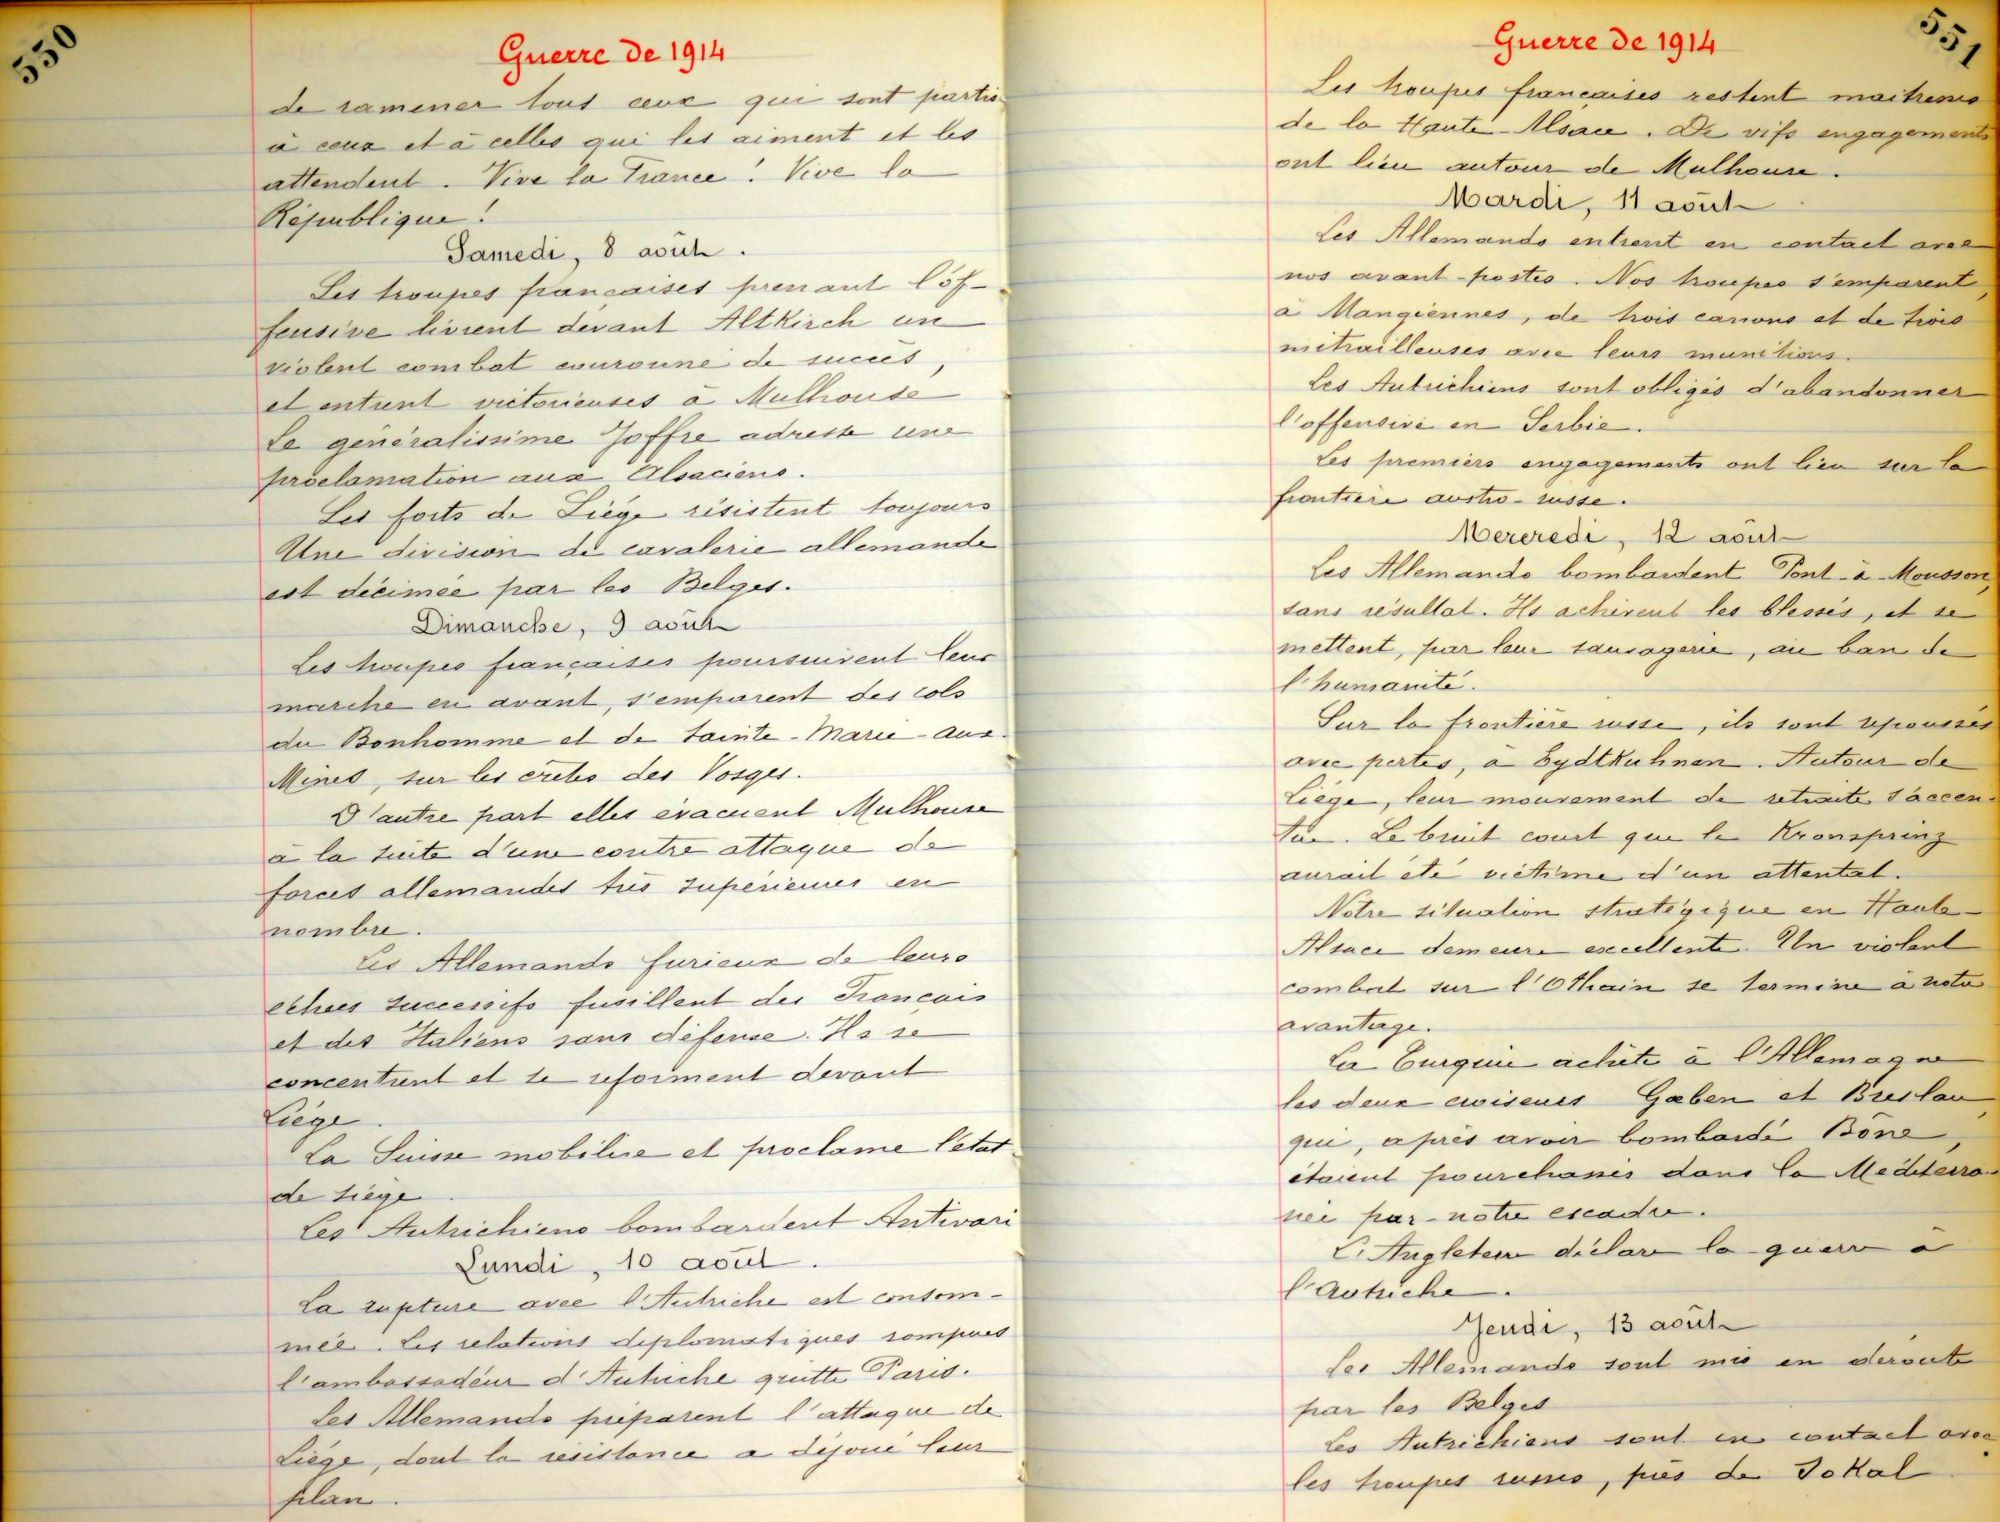 550
Guerre de 1914
de ramener tous ceux qui sont partis
à ceux et à celles qui les aiment et les
attendent. Vive la France ! Vive la
République !
Samedi, 8 août.
Les troupes françaises prenant l'of-
fensive livrent devant Altkirch un
violent combat couronné de succès,
et entrent victorieuses à Mulhouse
Le généralissime Joffre adresse une
proclamation aux Alsaciens.
Les forts de Liége résistent toujours
Une division de cavalerie allemande
est décimée par les Belges.
Dimanche, 9 août
Les troupes françaises poursuivent leur
marche en avant, s'emparent des cols
du Bonhomme et de Sainte-Marie-aux-
Mines, sur les crêtes des Vosges.
D'autre part elles évacuent Mulhouse
à la suite d'une contre attaque de
forces allemandes très supérieures en
nombre.
Les Allemands furieux de leurs
échecs successifs fusillent des Français
et des Italiens sans défense. Ils se
concentrent et se reforment devant
Liége.
La Suisse mobilise et proclame l'état
de siège.
Les Autrichiens bombardent Antivari
Lundi, 10 août.
La rupture avec l'Autriche est consom-
mée. Les relations diplomatiques rompues
l'ambassadeur d'Autriche quitte Paris.
Les Allemands préparent l'attaque de
Liége, dont la résistance a déjoué leur
plan.
551
Guerre de 1914
Les troupes françaises restent maitresses
de la Haute-Alsace. De vifs engagements
ont lieu autour de Mulhouse.
Mardi, 11 août
Les Allemands entrent en contact avec
nos avant-postes. Nos troupes s'emparent,
à Mangiennes, de trois canons et de trois
mitrailleuses avec leurs munitions.
Les Autrichiens sont obligés d'abandonner
l'offensive en Serbie.
Les premiers engagements ont lieu sur la
frontière austro-russe.
Mercredi, 12 août
Les Allemands bombardent Pont-à-Mousson,
sans résultat. Ils achèvent les blessés, et se
mettent, par leur sauvagerie, au ban de
l'humanité.
Sur la frontière russe, ils sont repoussés
avec pertes, à Eydtkuhnen. Autour de
Liége, leur mouvement de retraite s'accen-
tue. Le bruit court que le Kronsprinz
aurait été victime d'un attentat.
Notre situation stratégique en Haute-
Alsace demeure excellente. Un violent
combat sur l'Othain se termine à notre
avantage.
La Turquie achète à l'Allemagne
les deux croiseurs Gœben et Breslau,
qui, après avoir bombardé Bône,
étaient pourchassés dans la Mediterra-
née par notre escadre.
L'Angleterre déclare la guerre à
l'Autriche.
Jeudi, 13 août
Les Allemands sont mis en déroute
par les Belges
Les Autrichiens sont en contact avec
les troupes russes, près de Sokal.